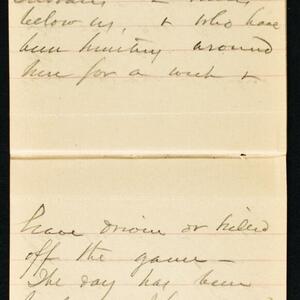 below us, & who have
been hunting around
here for a week &
have driven or killed
off the game —
The day has been